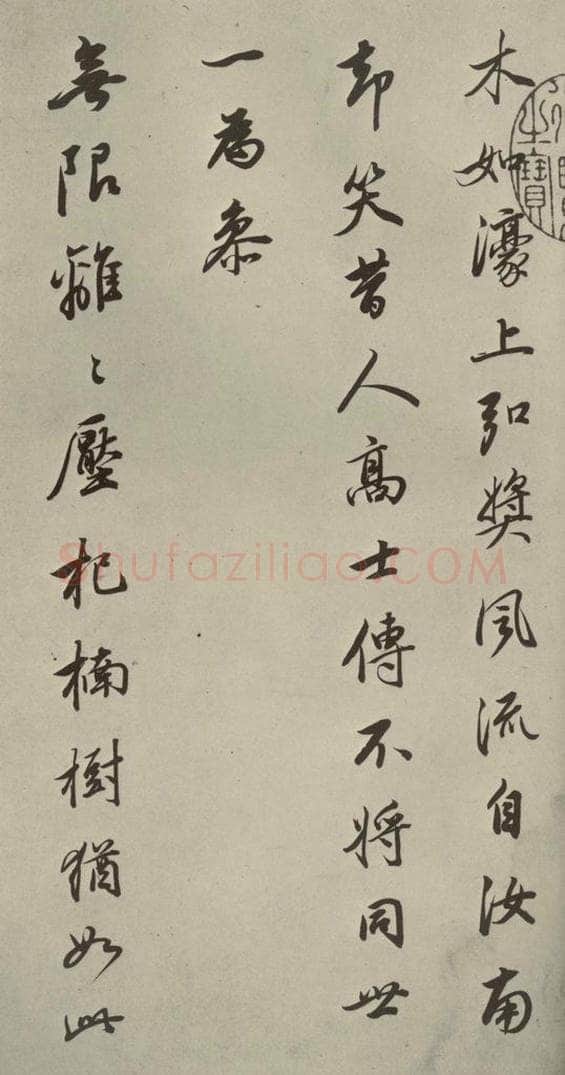 木如濠上弘奬風流自汝南
却笑昔人高士傳不將同世
一為叅
無限離〻壓杞楠樹猶如此
之寶
Shufaziliao.COM